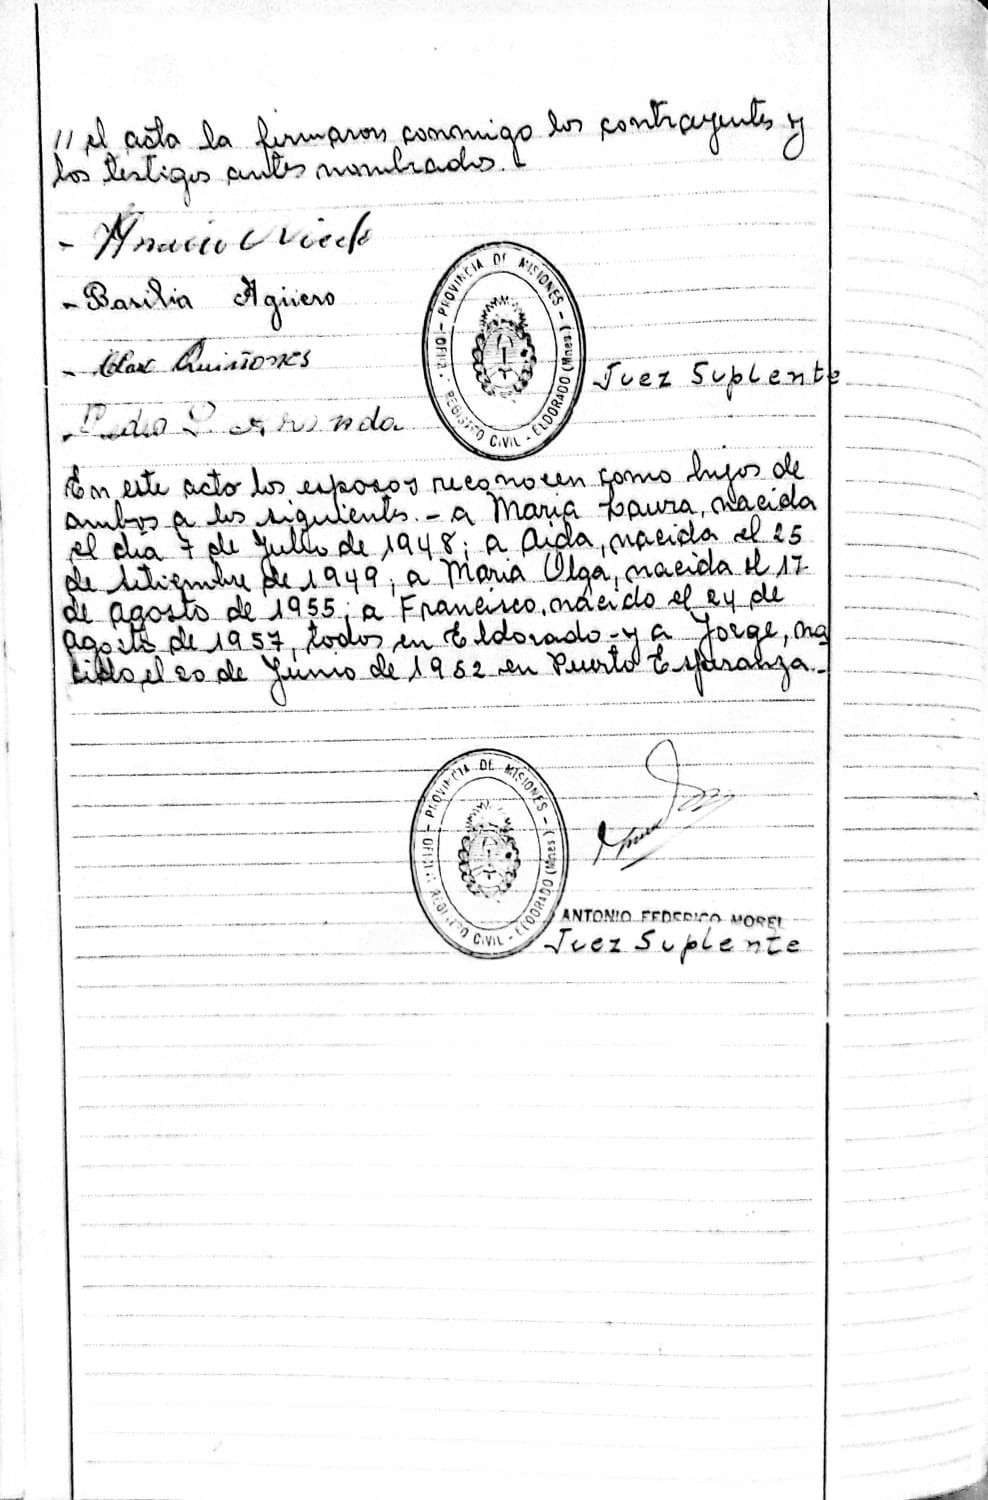 // el acta la firmaron conmigo los contrayentes y
los testigos antes nombrados.-
- Oviedo
- Basilia Agüero
- Quiñones
- Pedro
OFIC. REGISTRO CIVIL - ELDORADO (Mnes.) - PROVINCIA DE MISIONES -
Juez Suplente
En este acto los esposos reconocen como hijos de
ambos a los siguientes.- a Maria Laura, nacida
el día 7 de Julio de 1948; a Aida, nacida el 25
de setiembre de 1949; a Maria Olga, nacida el 17
de agosto de 1955; a Francisco, nacido el 24 de
agosto de 1957, todos en Eldorado - y a Jorge, na
cido el 20 de Junio de 1952 en Puerto Esperanza.-
OFIC. REGISTRO CIVIL - ELDORADO (Mnes.) - PROVINCIA DE MISIONES -
ANTONIO FEDERICO MOREL
Juez Suplente